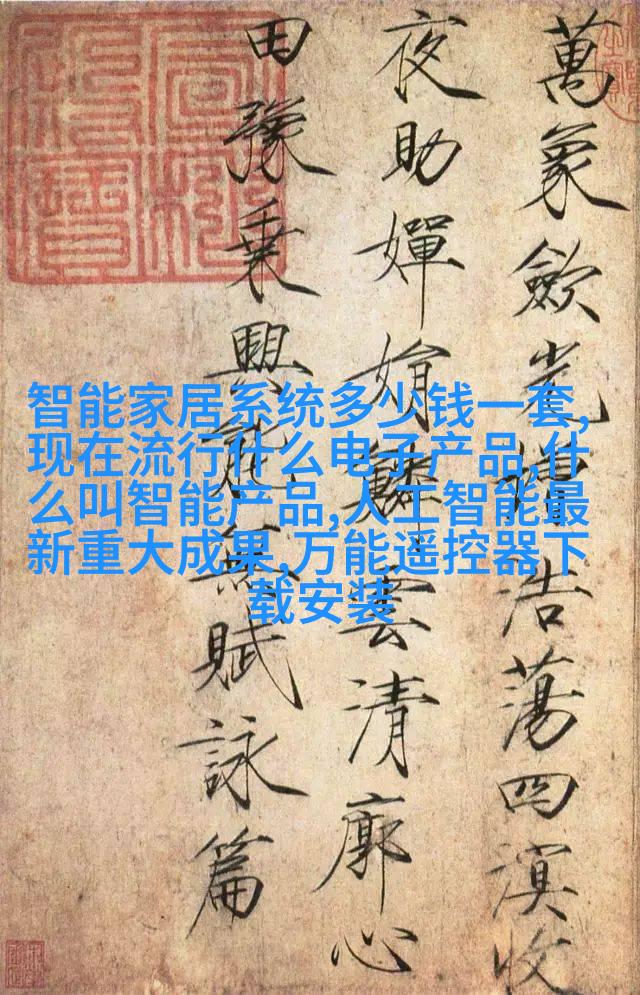 萬象歛光增浩蕩四溟收
夜助嬋娟鱗雲清廓心
田豫乘興能無賦詠篇
智能家居系统多少钱一套,
现在流行什么电子产品,什
么叫智能产品,人工智能最
新重大成果,万能遥控器下
载安装